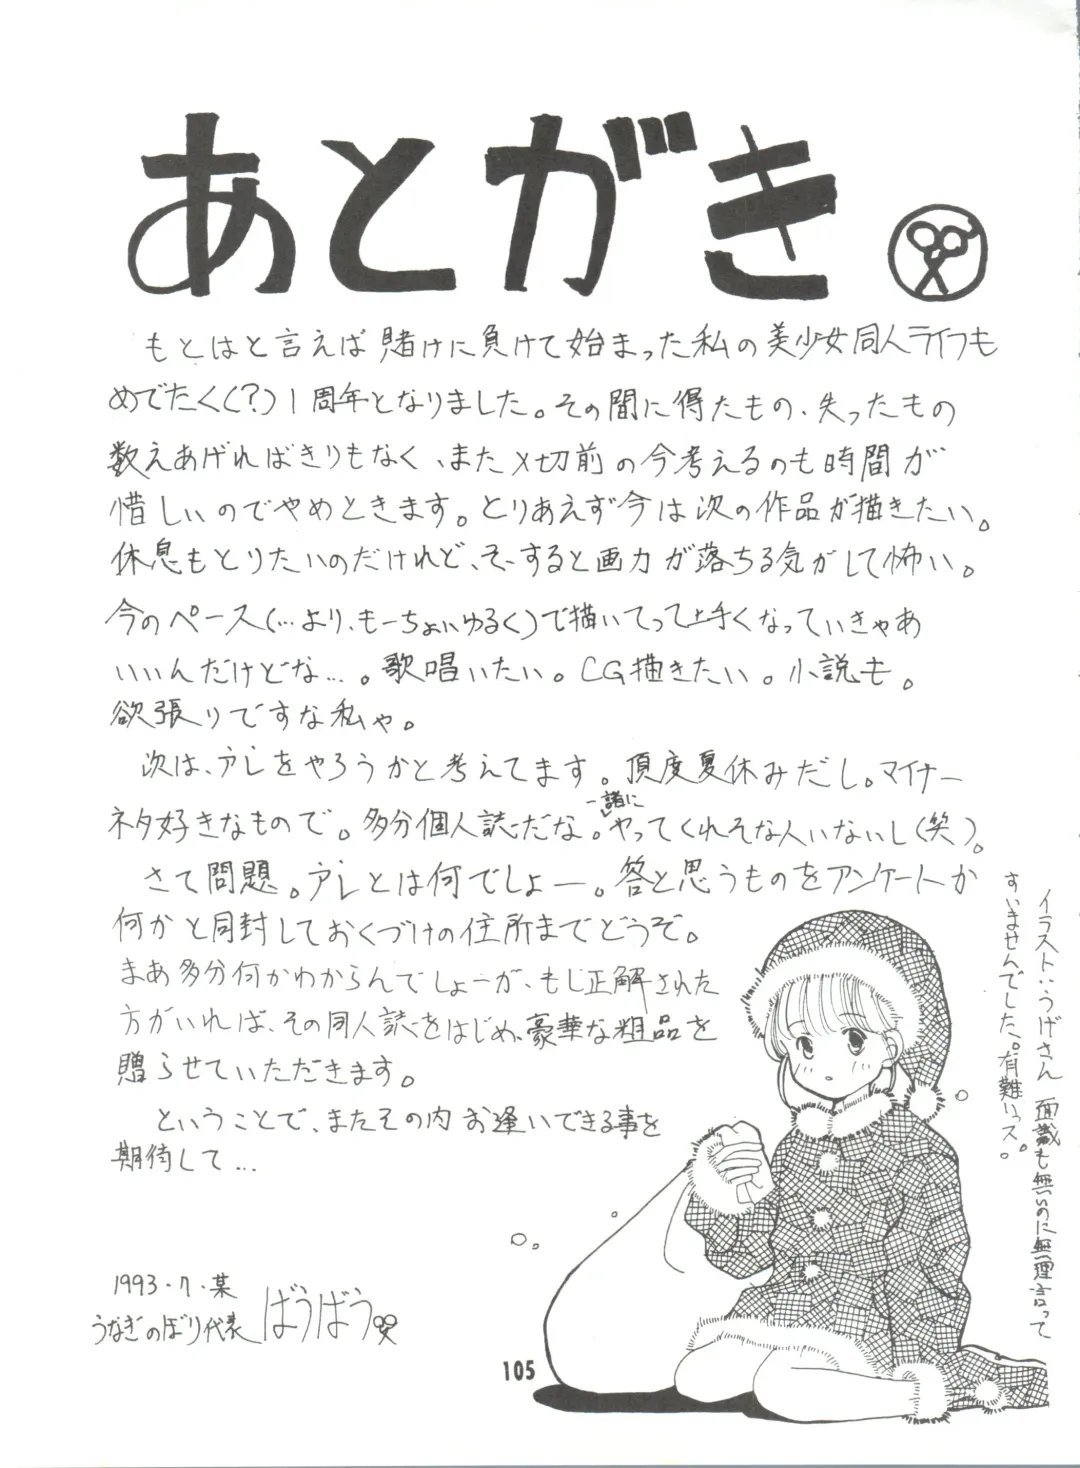 あとがき
もとはと言えば賭けに負けて始まった私の美少女同人ライフも
めでたく(?)1周年となりました。その間に得たもの、失ったもの
数えあげればきりもなく、また〆切前の今考えるのも時間が
惜しいのでやめときます。とりあえず今は次の作品が描きたい。
休息もとりたいのだけれど、そーすると画力が落ちる気がして怖い。
今のペース(…より、もーちょいゆるく)で描いてって上手くなっていきゃあ
いいんだけどな…。歌唱いたい。CG描きたい。小説も。
欲張りですな私ゃ。
次は、アレをやろうかと考えてます。頂度夏休みだし。マイナー
ネタ好きなもので。多分個人誌だな。一諸にやってくれそな人いないし(笑)。
さて問題。アレとは何でしょー。答と思うものをアンケートか
何かと同封しておくづけの住所までどうぞ。
まあ多分何かわからんでしょーが、もし正解された
方がいれば、その同人誌をはじめ、豪華な粗品を
贈らせていただきます。
ということで、またその内お逢いできる事を
期待して…
1993・7・某
うなぎのぼり代表 ばうばう
イラストいうげさん 面識も無いのに無理言って
すいませんでした。有難いッス。
105